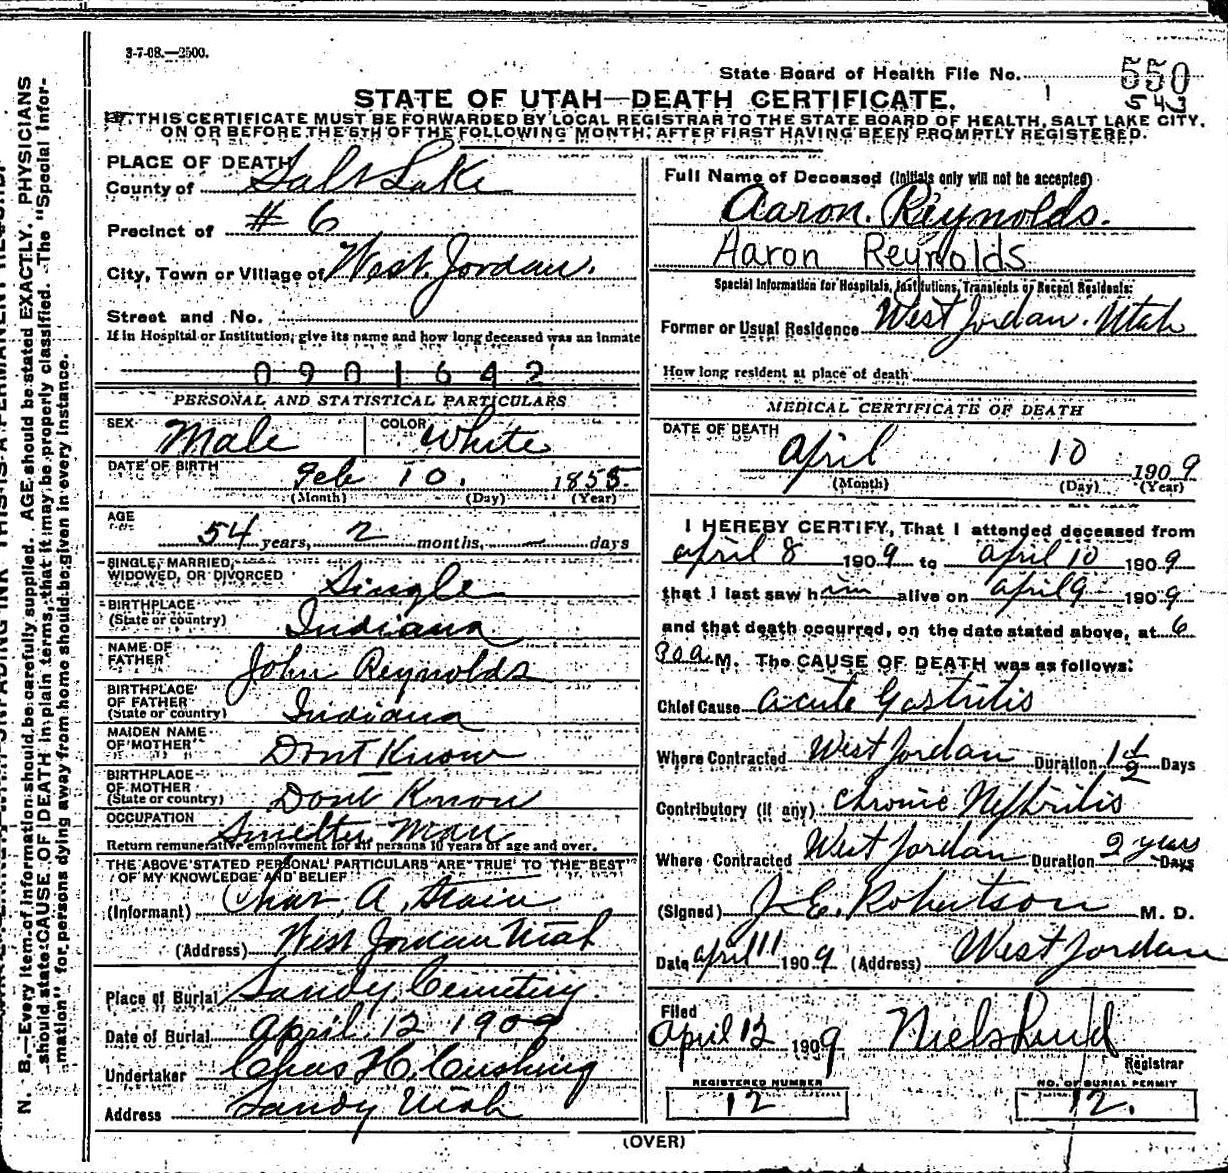 3-7-08.—2500.
State Board of Health File No. 550
543
STATE OF UTAH—DEATH CERTIFICATE.
THIS CERTIFICATE MUST BE FORWARDED BY LOCAL REGISTRAR TO THE STATE BOARD OF HEALTH, SALT LAKE CITY,
ON OR BEFORE THE 5TH OF THE FOLLOWING MONTH, AFTER FIRST HAVING BEEN PROMPTLY REGISTERED.
PLACE OF DEATH
County of Salt Lake
Precinct of # 6
City, Town or Village of West Jordan.
Street and No.
If in Hospital or Institution, give its name and how long deceased was an inmate
0901642
PERSONAL AND STATISTICAL PARTICULARS
SEX Male COLOR White
DATE OF BIRTH Feb 10. 1855
(Month) (Day) (Year)
AGE
54 years, 2 months, — days
SINGLE, MARRIED,
WIDOWED, OR DIVORCED Single
BIRTHPLACE
(State or country) Indiana
NAME OF
FATHER John Reynolds
BIRTHPLACE
OF FATHER
(State or country) Indiana
MAIDEN NAME
OF MOTHER Dont Know
BIRTHPLACE
OF MOTHER
(State or country) Dont Know
OCCUPATION Smelter Man
Return remunerative employment for all persons 10 years of age and over.
THE ABOVE STATED PERSONAL PARTICULARS ARE TRUE TO THE BEST
OF MY KNOWLEDGE AND BELIEF
(Informant) Chas. A. Stain
(Address) West Jordan Utah
Place of Burial Sandy Cemetery
Date of Burial April 12 1909
Undertaker Chas H. Cushing
Address Sandy Utah
Full Name of Deceased (Initials only will not be accepted)
Aaron. Reynolds.
Aaron Reynolds
Special Information for Hospitals, Institutions, Transients or Recent Residents:
Former or Usual Residence West Jordan. Utah
How long resident at place of death
MEDICAL CERTIFICATE OF DEATH
DATE OF DEATH
April 10 1909
(Month) (Day) (Year)
I HEREBY CERTIFY, That I attended deceased from
April 8 1909 to April 10 1909
that I last saw him alive on April 9 1909
and that death occurred, on the date stated above, at 6
30 a. M. The CAUSE OF DEATH was as follows:
Chief Cause acute Gastritis
Where Contracted West Jordan Duration 1 1/2 Days
Contributory (if any) Chronic Nephritis
Where Contracted West Jordan Duration 2 years Days
(Signed) J. E. Robertson M. D.
Date April 11 1909 (Address) West Jordan
Filed
April 12 1909 Niels Lind
Registrar
REGISTERED NUMBER
12
NO. OF BURIAL PERMIT
12.
(OVER)
N. B.—Every item of information should be carefully supplied. AGE should be stated EXACTLY. PHYSICIANS
should state CAUSE OF DEATH in plain terms, that it may be properly classified. The "Special Infor-
mation" for persons dying away from home should be given in every instance.